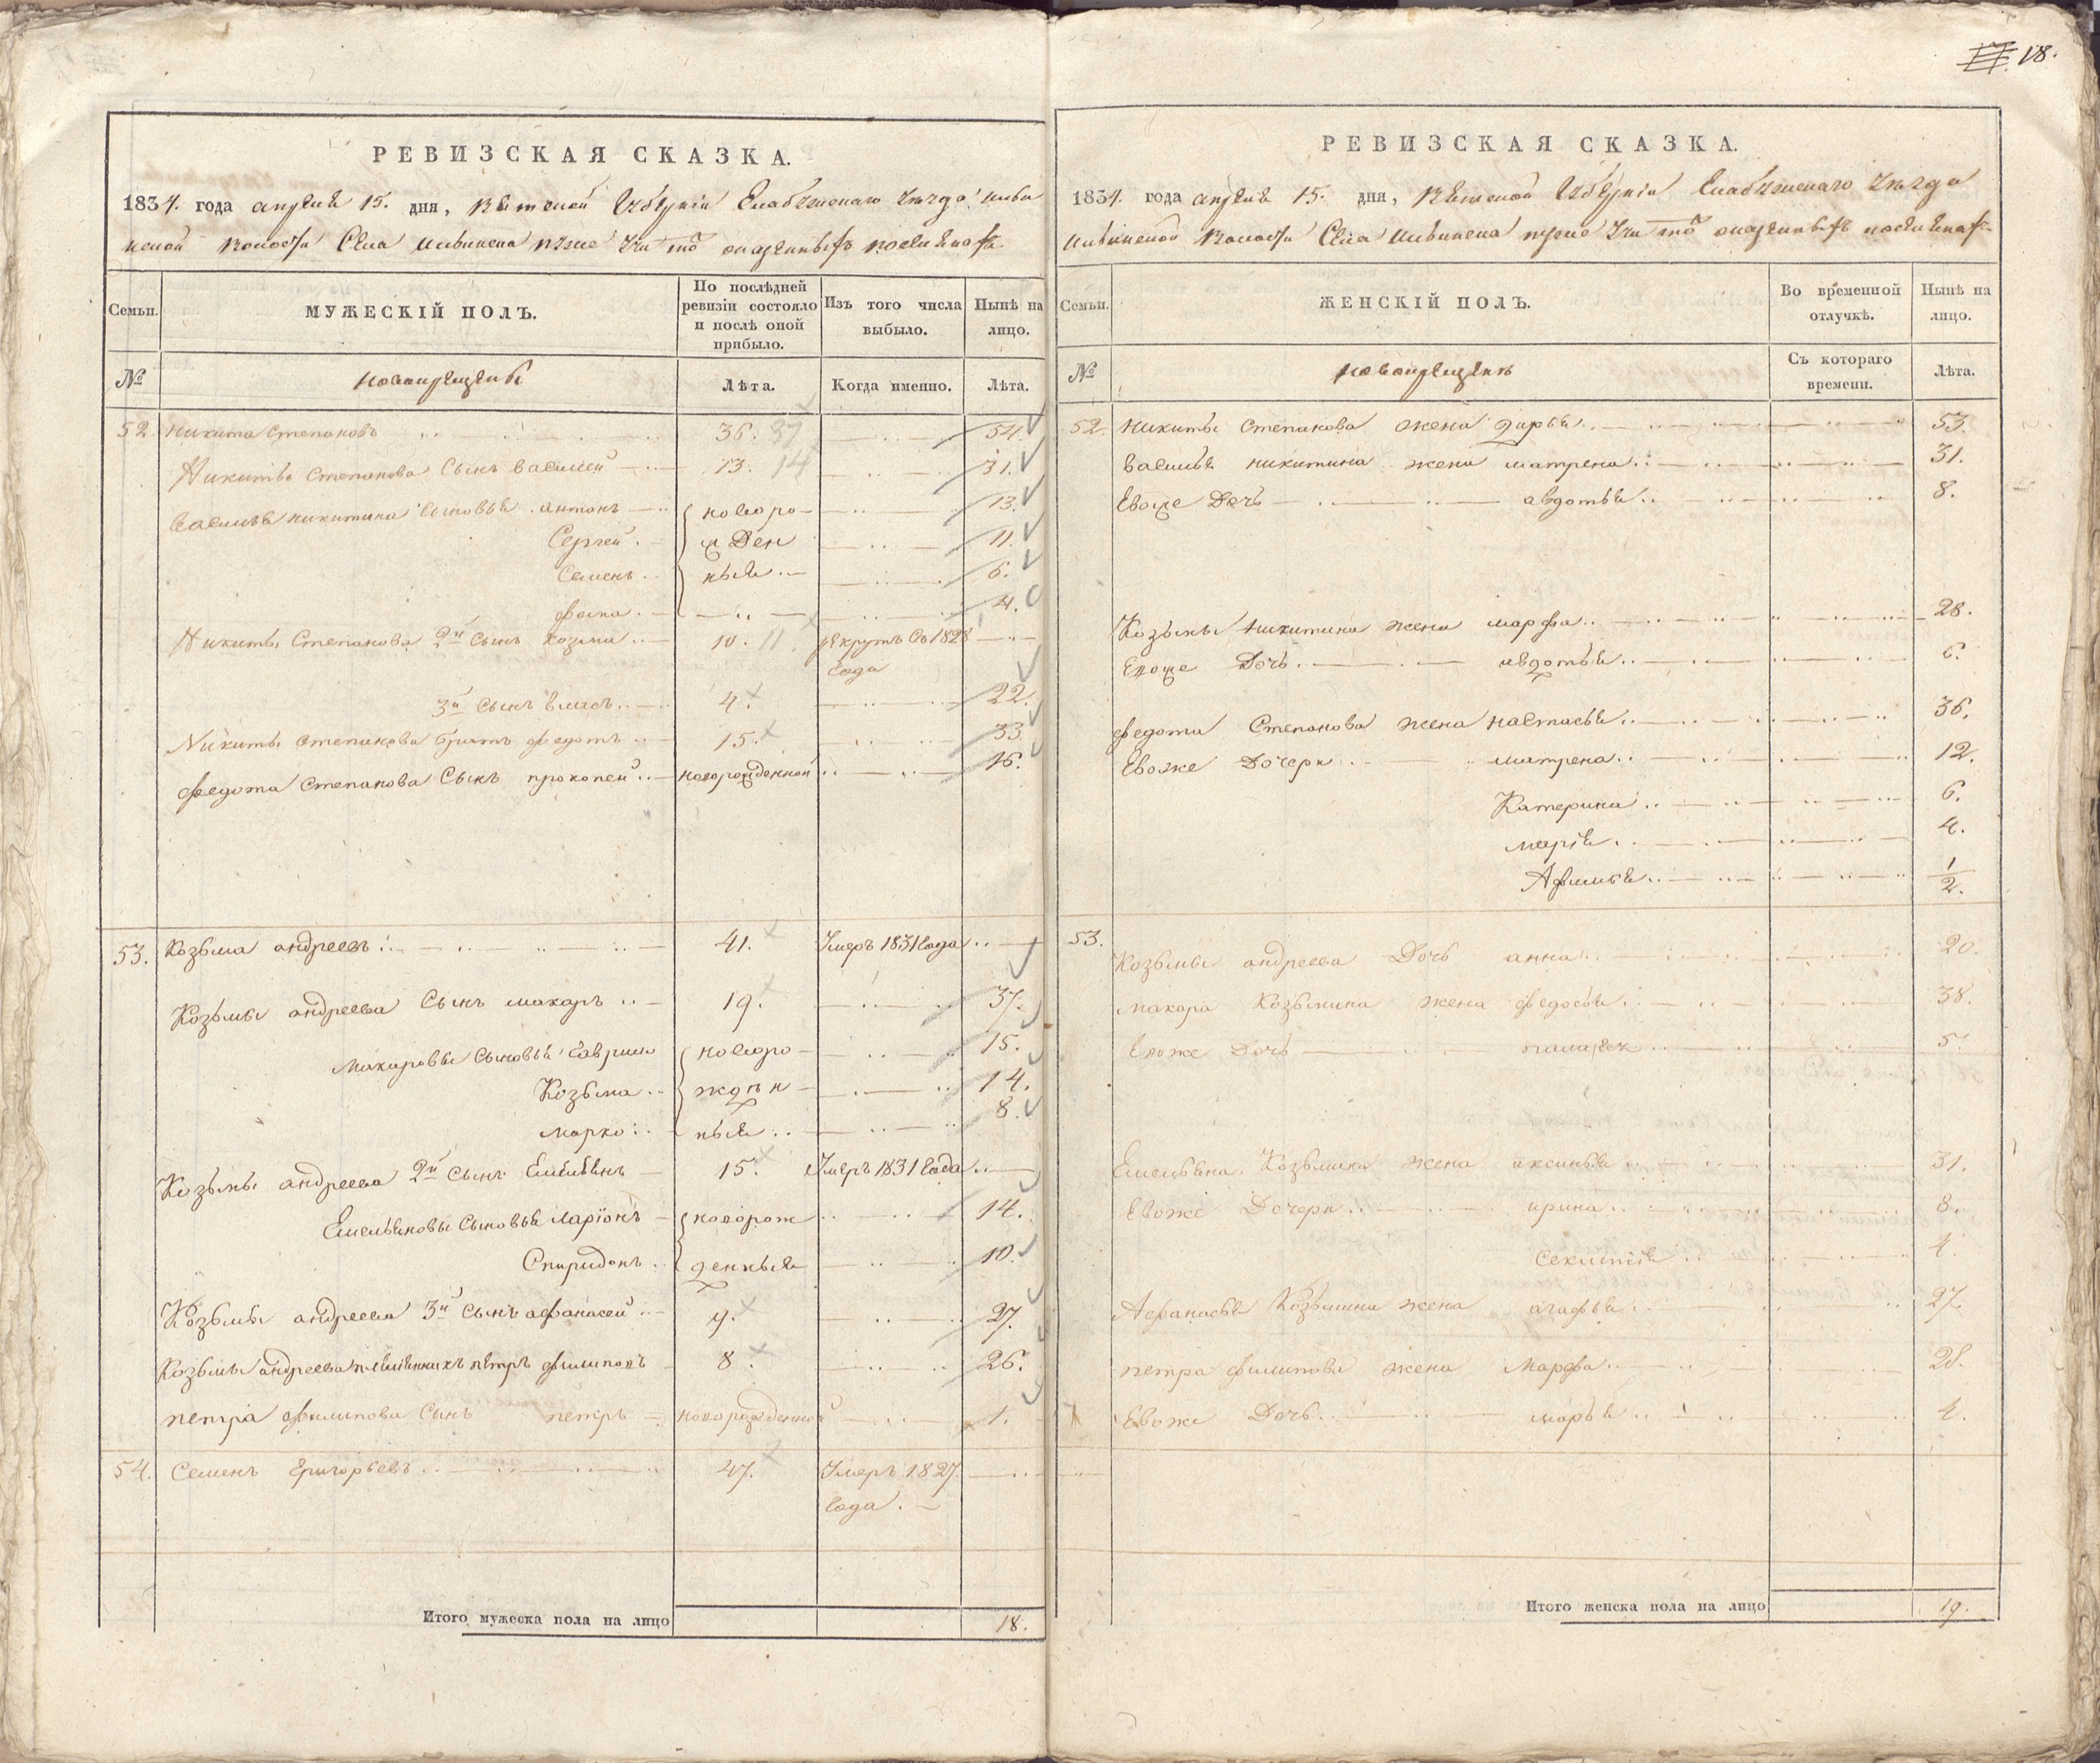 18.
РЕВИЗСКАЯ СКАЗКА.
1834. года апреля 15. дня, Вятской Губерніи Елабужскаго уезда
волости Села
Семьи.
МУЖЕСКІЙ ПОЛЪ.
По послѣдней ревизіи состояло и послѣ оной прибыло.
Изъ того числа выбыло.
Нынѣ на лицо.
№
новокрещены
Лѣта.
Когда именно.
Лѣта.
52. никита степановъ 36. 37 54.
Никиты степанова сынъ василей 13. 14 31.
василья никитина сыновья антонъ новоро- 13.
Сергей жден 11.
семенъ ныя 6.
фома 4.
Никиты Степанова 2й сынъ козма 10. 11 рекрутъ съ 1828
года
3й сынъ власъ 4. 22.
Никиты степанова братъ федотъ 15. 33
федота степанова сынъ прокопей новорожденной 16.
53. Козьма андреевъ 41. Умеръ 1831 года
Козьмы андреева сынъ макаръ 19. 37.
Макаровы сыновья гаврило новоро 15.
Козьма ждѣн 14.
марко ныя 8.
Козьмы андреева 2й сынъ Емельянъ 15. Умеръ 1831 года
Емельяновы сыновья ларіонъ новорож 14.
Спиридонъ денныя 10.
Козьмы андреева 3й сынъ афанасей 9. 27.
Козьмы андреева племянникъ петръ филиповъ 8. 26.
петра филипова сынъ петръ новорожденной 1.
54. Семенъ григорьевъ 47. Умеръ 1827
года.
Итого мужеска пола на лицо 18.
РЕВИЗСКАЯ СКАЗКА.
1834. года апреля 15. дня, Вятской Губерніи Елабужскаго уезда
волости Села
Семьи.
ЖЕНСКІЙ ПОЛЪ.
Во временной отлучкѣ.
Нынѣ на лицо.
№
новокрещенъ
Съ котораго времени.
Лѣта.
52. никиты степанова жена дарья 53.
василья никитина жена матрена 31.
Евоже Дочь авдотья 8.
Козьмы никитина жена марфа 28.
Евоже Дочь авдотья 6.
федота Степанова жена настасья 36.
Евоже Дочери матрена 12.
Катерина 6.
марія 4.
Афимья 1/2.
53. Козьмы андреева Дочь анна 20.
макара Козьмина жена федосья 38.
Евоже Дочь 5.
Емельяна Козьмина жена аксинья 31.
Евоже Дочери ирина 8.
4.
Афанасья Козьмина жена агафья 27.
петра филипова жена Марфа 28.
Евоже Дочь марья 4.
Итого женска пола на лицо 19.